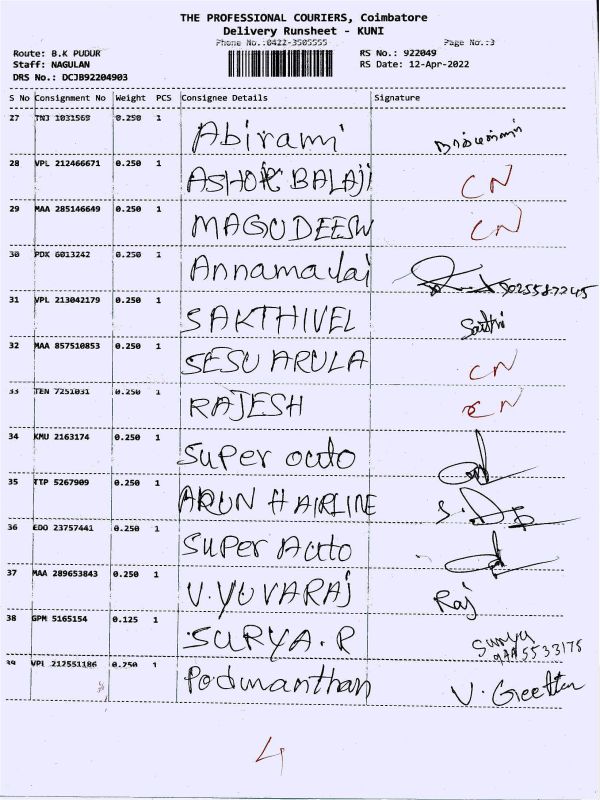 THE PROFESSIONAL COURIERS, Coimbatore
Delivery Runsheet - KUNI
Phone No.:0422-3505555 Page No.:3
Route: B.K PUDUR RS No.: 922049
Staff: NAGULAN RS Date: 12-Apr-2022
DRS No.: DCJB92204903
S No Consignment No Weight PCS Consignee Details Signature
27 TNJ 1031569 0.250 1 Abirami
28 VPL 212466671 0.250 1 ASHOK BALAJI CN
29 MAA 285146649 0.250 1 MAGUDEESW CN
30 PDK 6013242 0.250 1 Annamalai
31 VPL 213042179 0.250 1 SAKTHIVEL
32 MAA 857510853 0.250 1 SESU ARULA CN
33 TEN 7251031 0.250 1 RAJESH CN
34 KMU 2163174 0.250 1 Super auto
35 TTP 5267909 0.250 1 ARUN HAIRLINE
36 EDO 23757441 0.250 1 Super Auto
37 MAA 289653843 0.250 1 V.YUVARAJ Raj
38 GPM 5165154 0.125 1 SURYA.R Surya
39 VPL 212551186 0.250 1 Padmanthan
4